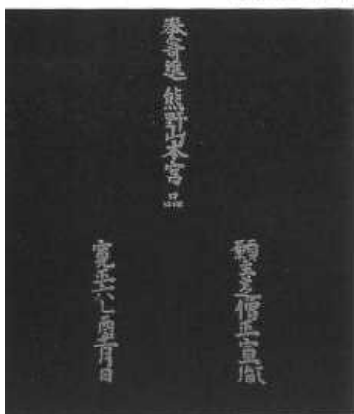 奉寄進 熊野山本宮 品
願主 僧正宣胤
寛正六乙酉 月日